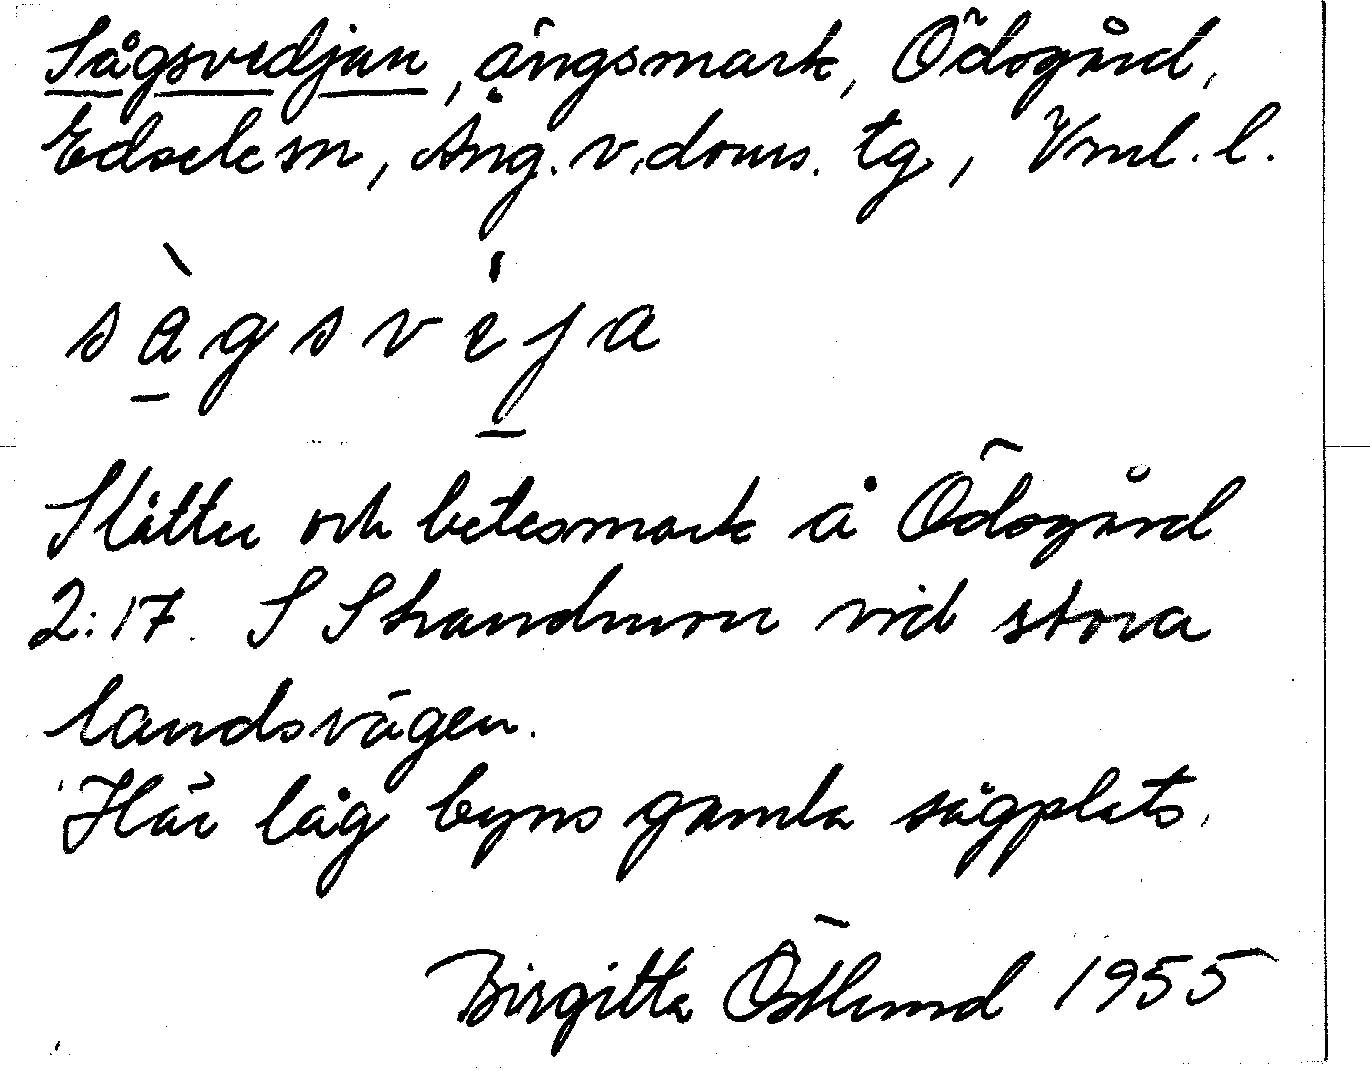 Sågsvedjan, ängsmark, Ödsgård,
Edsele sn, Ång. v. doms. tg, Vnl. l.
sàgsveja
Slåtter och betesmark å Ödsgård
2:17. S Strandmon vid stora
landsvägen.
Här låg byns gamla sågplats.
Birgitta Östlund 1955